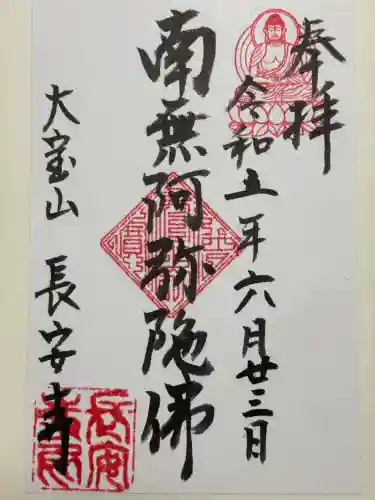 奉拝
令和五年六月廿三日
南無阿弥陀佛
大宝山 長安寺